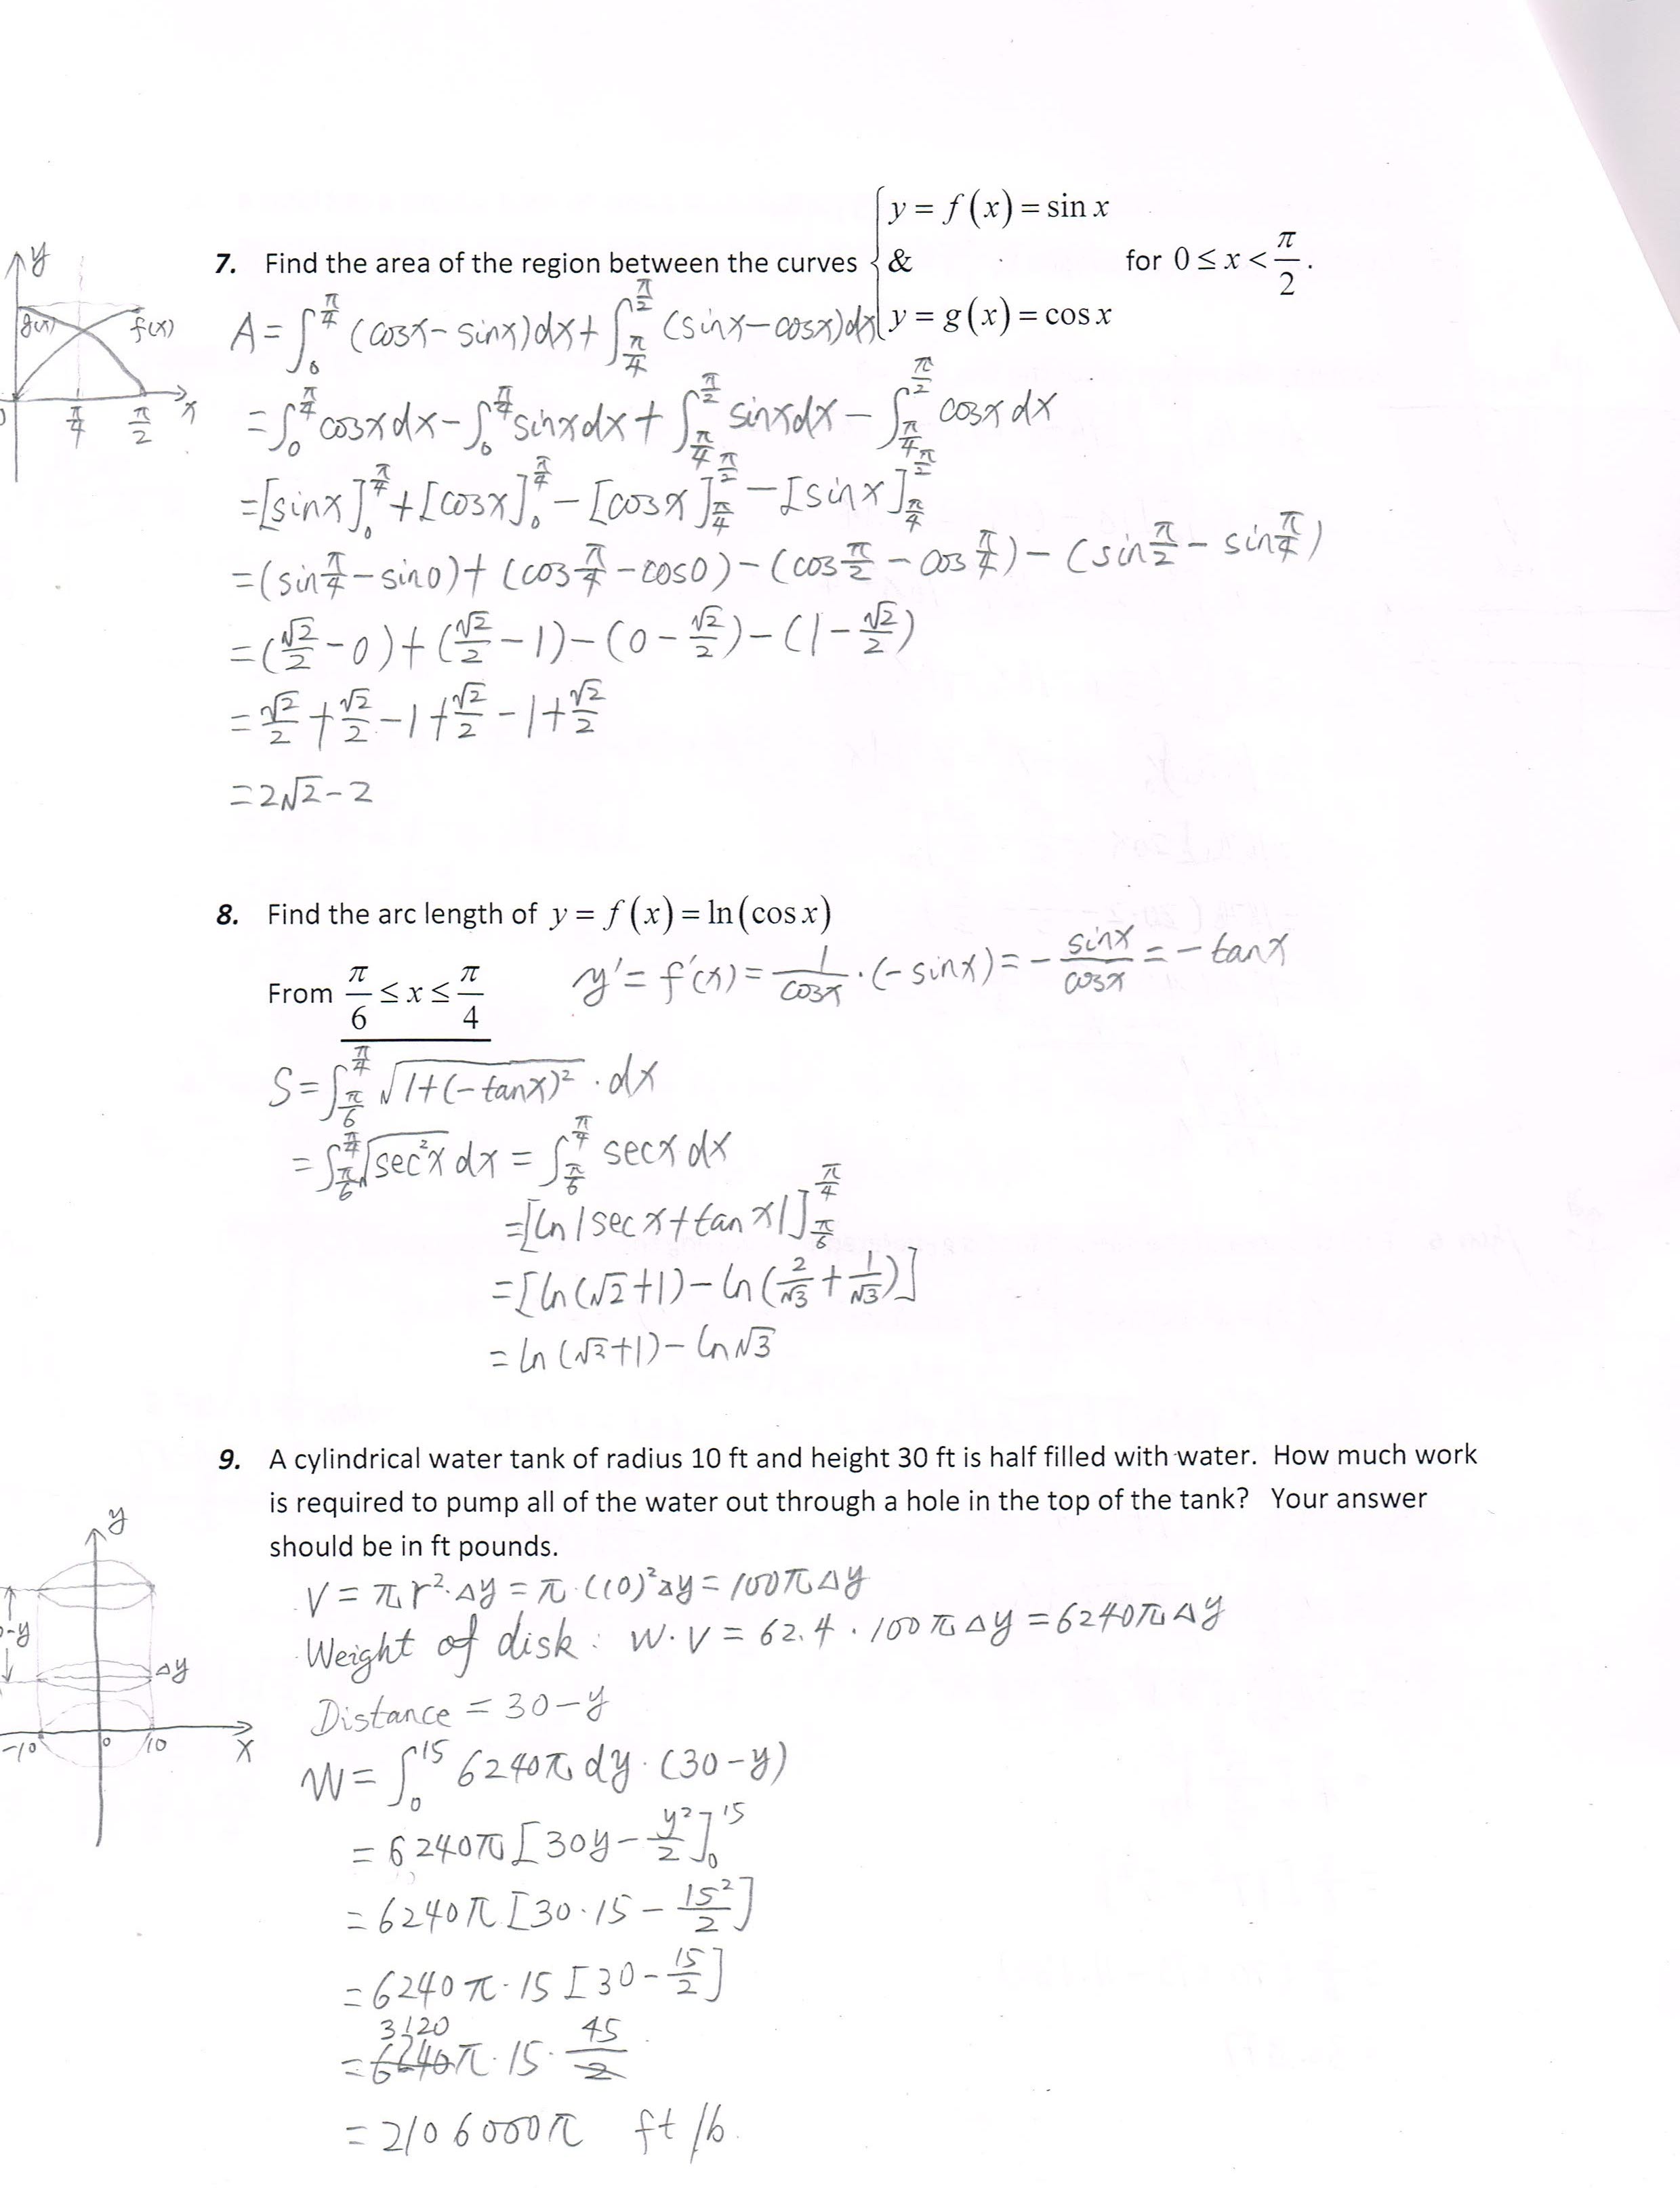 7. Find the area of the region between the curves { y = f(x) = sin x & y = g(x) = cos x for 0 ≤ x < π/2.
y
g(x) f(x)
0 π/4 π/2 x
A = ∫₀^(π/4) (cosx − sinx)dx + ∫_(π/4)^(π/2) (sinx − cosx)dx
= ∫₀^(π/4) cosx dx − ∫₀^(π/4) sinx dx + ∫_(π/4)^(π/2) sinx dx − ∫_(π/4)^(π/2) cosx dx
= [sinx]₀^(π/4) + [cosx]₀^(π/4) − [cosx]_(π/4)^(π/2) − [sinx]_(π/4)^(π/2)
= (sin π/4 − sin0) + (cos π/4 − cos0) − (cos π/2 − cos π/4) − (sin π/2 − sin π/4)
= (√2/2 − 0) + (√2/2 − 1) − (0 − √2/2) − (1 − √2/2)
= √2/2 + √2/2 − 1 + √2/2 − 1 + √2/2
= 2√2 − 2
8. Find the arc length of y = f(x) = ln(cos x)
From π/6 ≤ x ≤ π/4
y' = f'(x) = 1/cosx · (−sinx) = − sinx/cosx = − tanx
S = ∫_(π/6)^(π/4) √(1+(−tanx)²) · dx
= ∫_(π/6)^(π/4) √(sec²x) dx = ∫_(π/6)^(π/4) secx dx
= [ln|secx + tanx|]_(π/6)^(π/4)
= [ln(√2+1) − ln(2/√3 + 1/√3)]
= ln(√2+1) − ln√3
9. A cylindrical water tank of radius 10 ft and height 30 ft is half filled with water. How much work
is required to pump all of the water out through a hole in the top of the tank? Your answer
should be in ft pounds.
y
-y
Δy
-10 0 10 x
V = πr²·Δy = π·(10)²Δy = 100πΔy
Weight of disk: W·V = 62.4 · 100πΔy = 6240πΔy
Distance = 30−y
W = ∫₀^15 6240π dy · (30−y)
= 6240π [30y − y²/2]₀^15
= 6240π [30·15 − 15²/2]
= 6240π·15 [30 − 15/2]
3120
= 6240π·15 · 45/2
= 2106000π ft lb